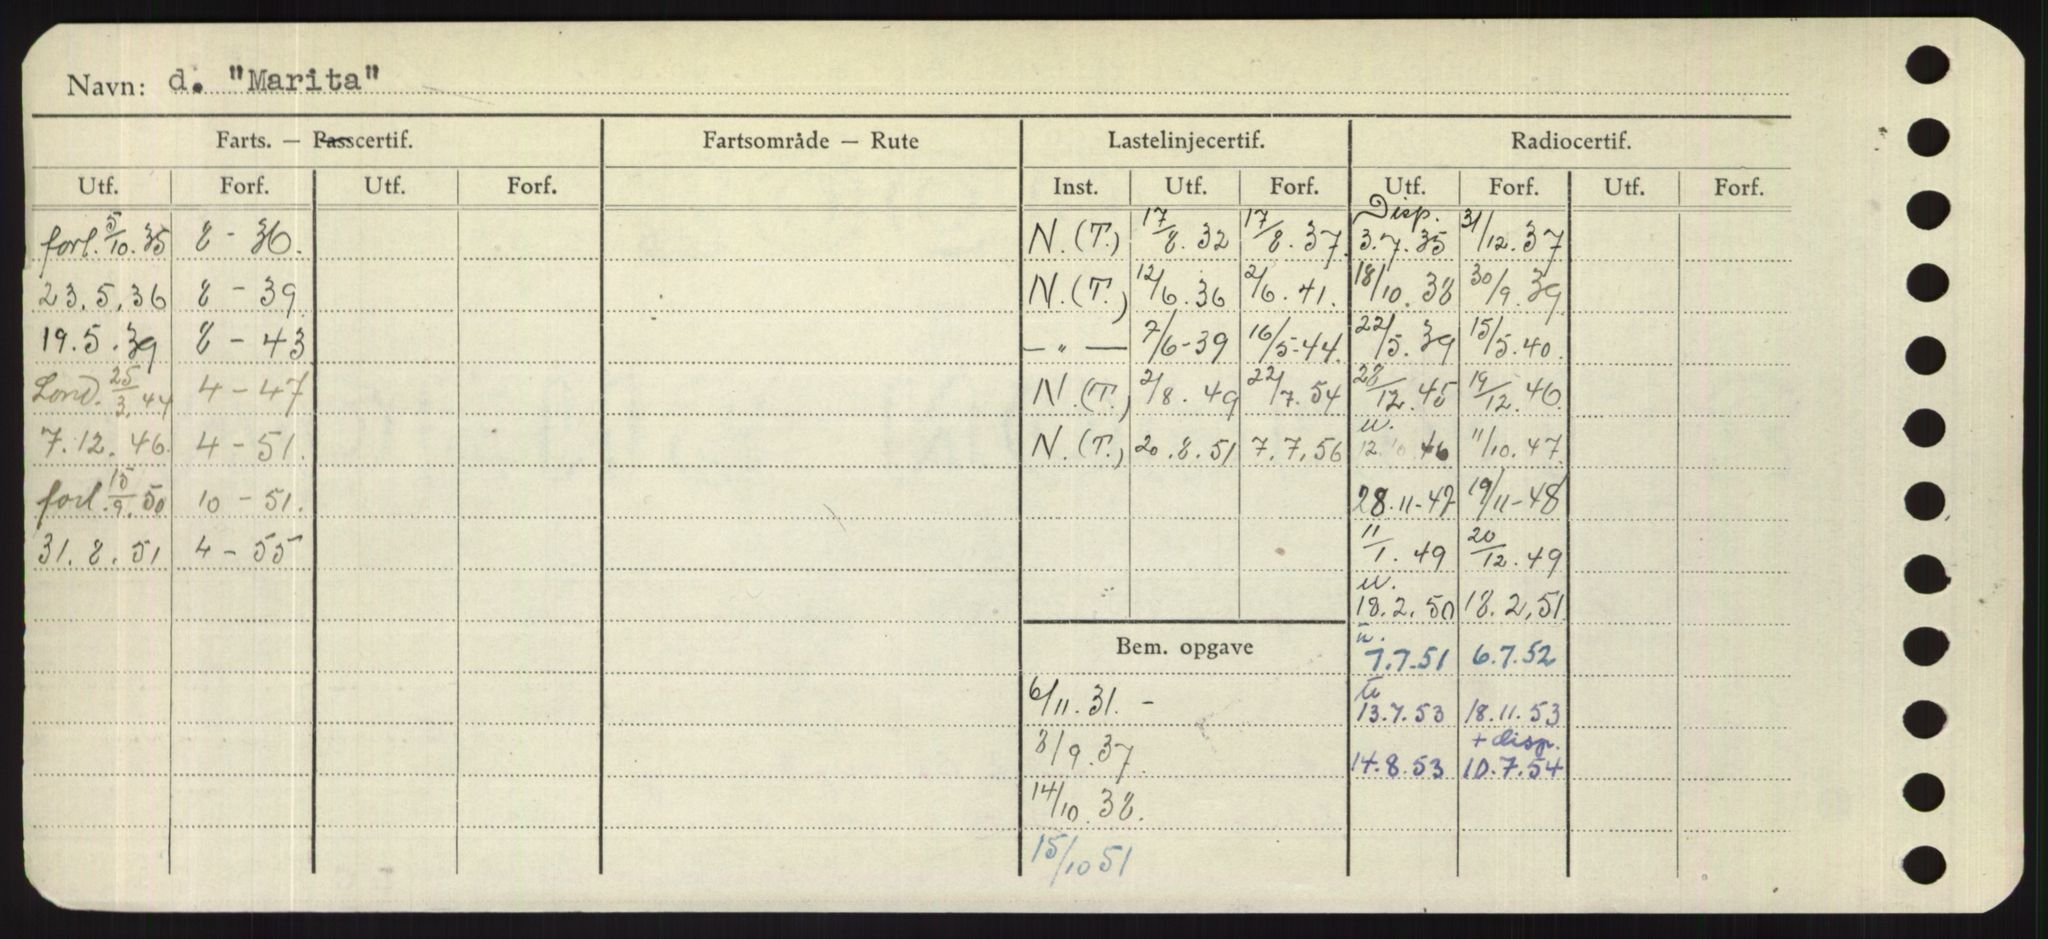 Navn: d. "Marita"
Farts. — Passcertif. Fartsområde — Rute Lastelinjecertif. Radiocertif.
Utf. Forf. Utf. Forf. Inst. Utf. Forf. Utf. Forf. Utf. Forf.
forl. 5/10. 35 8 - 36. N. (T.) 17/8. 32 17/8. 37. Disp. 3.7.35 31/12. 37
23. 5. 36 8 - 39 N. (T.) 12/6. 36 2/6. 41. 18/10. 38 30/9. 39
19. 5. 39 8 - 43 — " — 7/6-39 16/5-44. 22/5. 39 15/5. 40.
Lond. 25/3. 44 4 - 47 N. (T.) 2/8. 49 22/7. 54 28/12. 45 19/12. 46.
7. 12. 46. 4 - 51. N. (T.) 20. 8. 51 7. 7. 56 u. 12. 10. 46 11/10. 47.
forl. 15/9. 50 10 - 51. 28. 11-47 19/11-48
31. 8. 51 4 - 55 11/1. 49 20/12. 49
u. 18. 2. 50 18. 2. 51
Bem. opgave u. 7.7.51 6.7.52
6/11. 31. - 13.7.53 18.11.53
8/9. 37. 14.8.53 + disp. 10.7.54
14/10. 38.
15/10 51